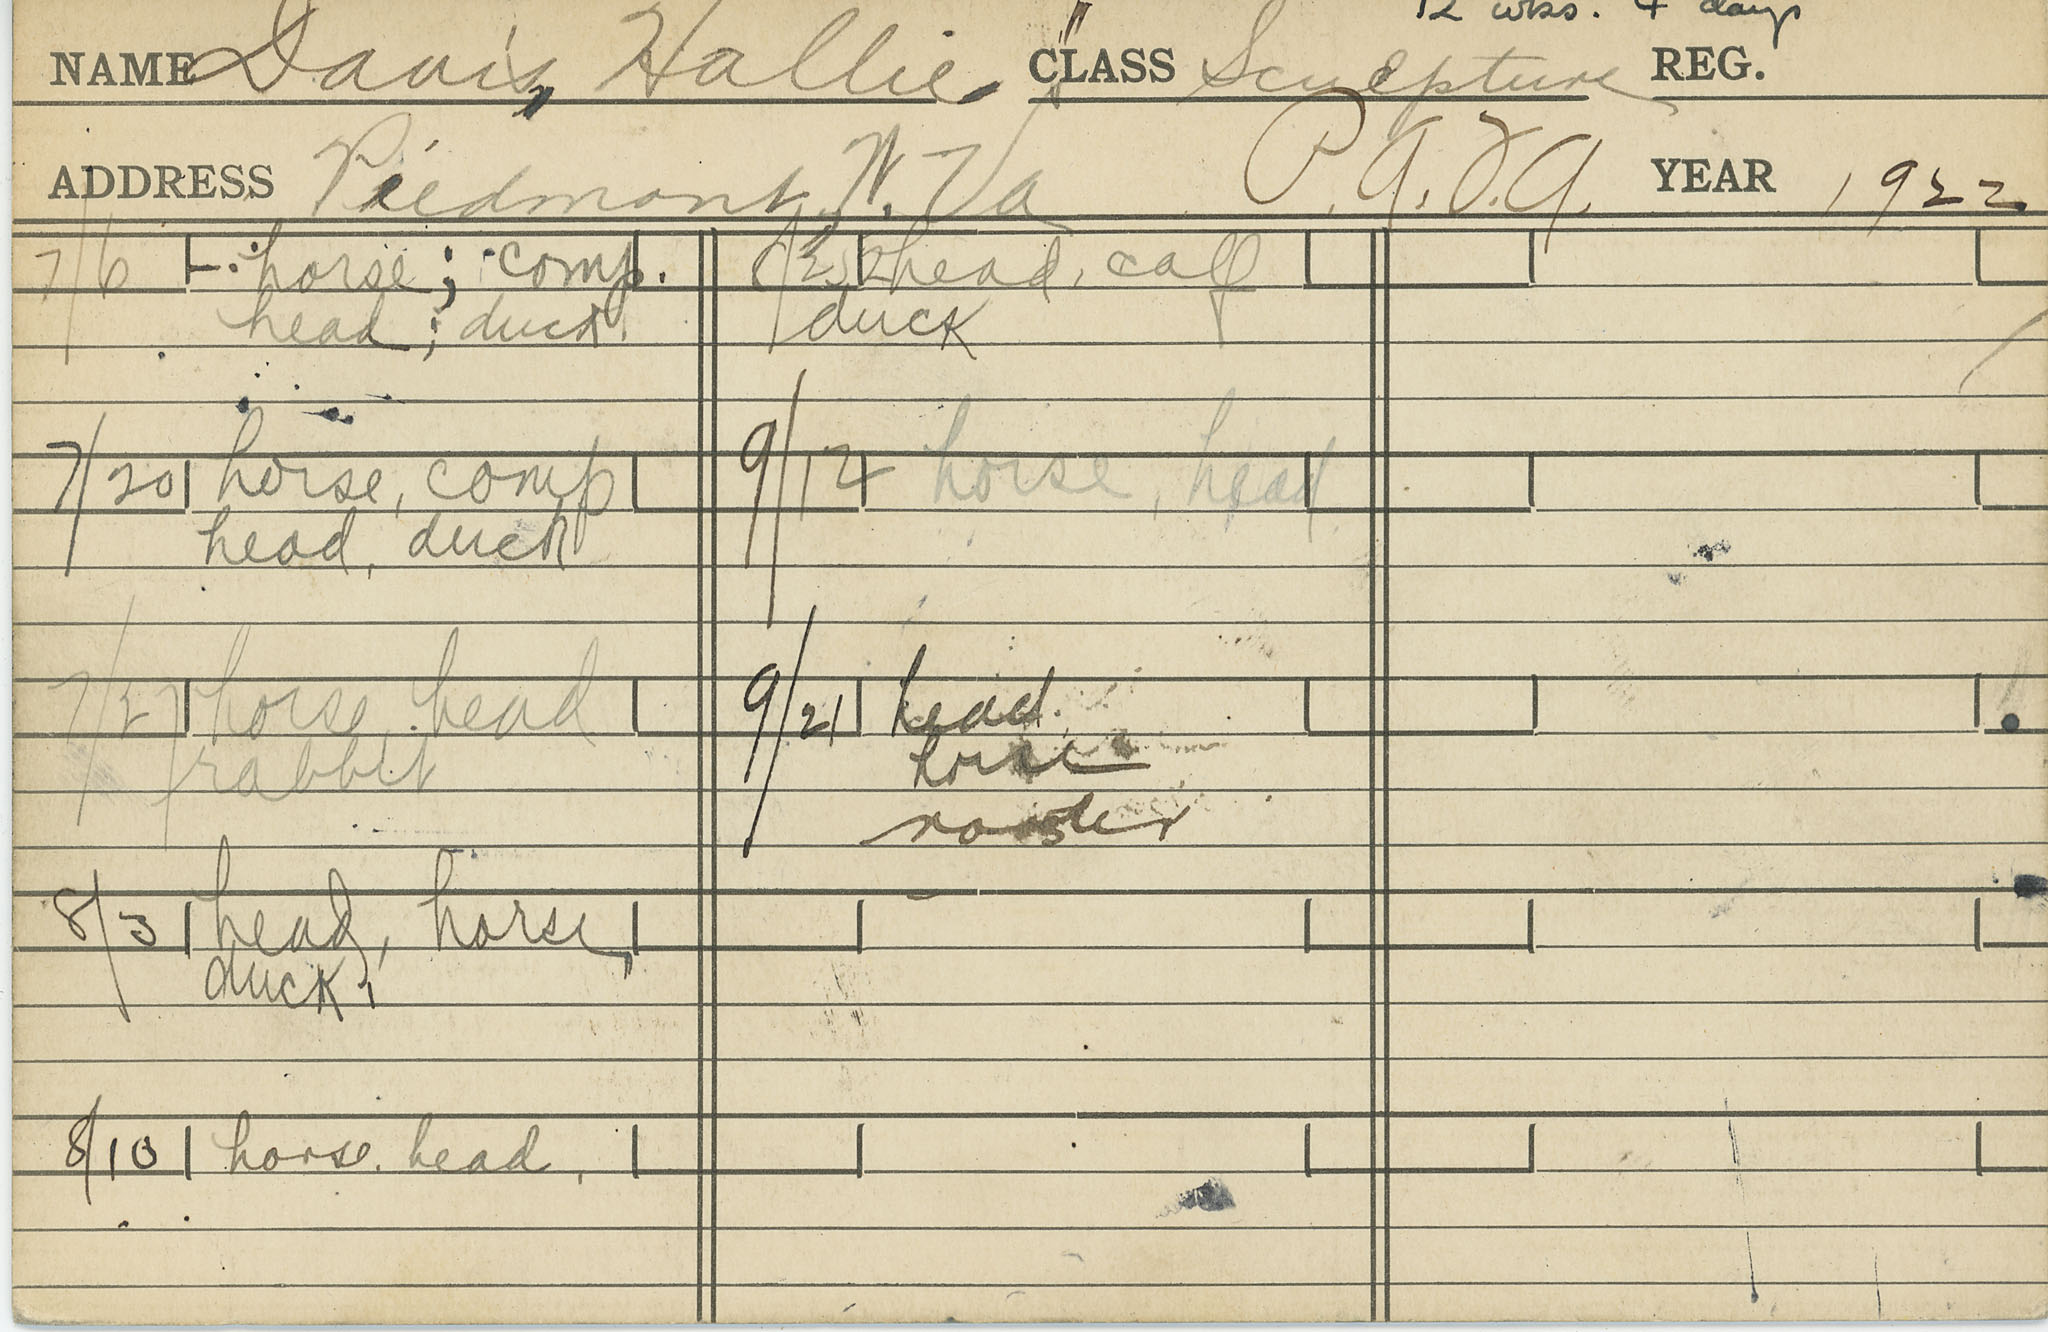 12 wks. 4 days
NAME Davis, Hallie CLASS Sculpture REG.
ADDRESS Piedmont, W. Va P.A.F.A. YEAR 1922
7/6 horse; comp.
head; duck.
7/20 horse, comp
head, duck
7/27 horse, head
rabbit
8/3 head, horse,
duck,
8/10 horse. head,
head, calf
duck
9/12 horse, head
9/21 head.
horse
rooster